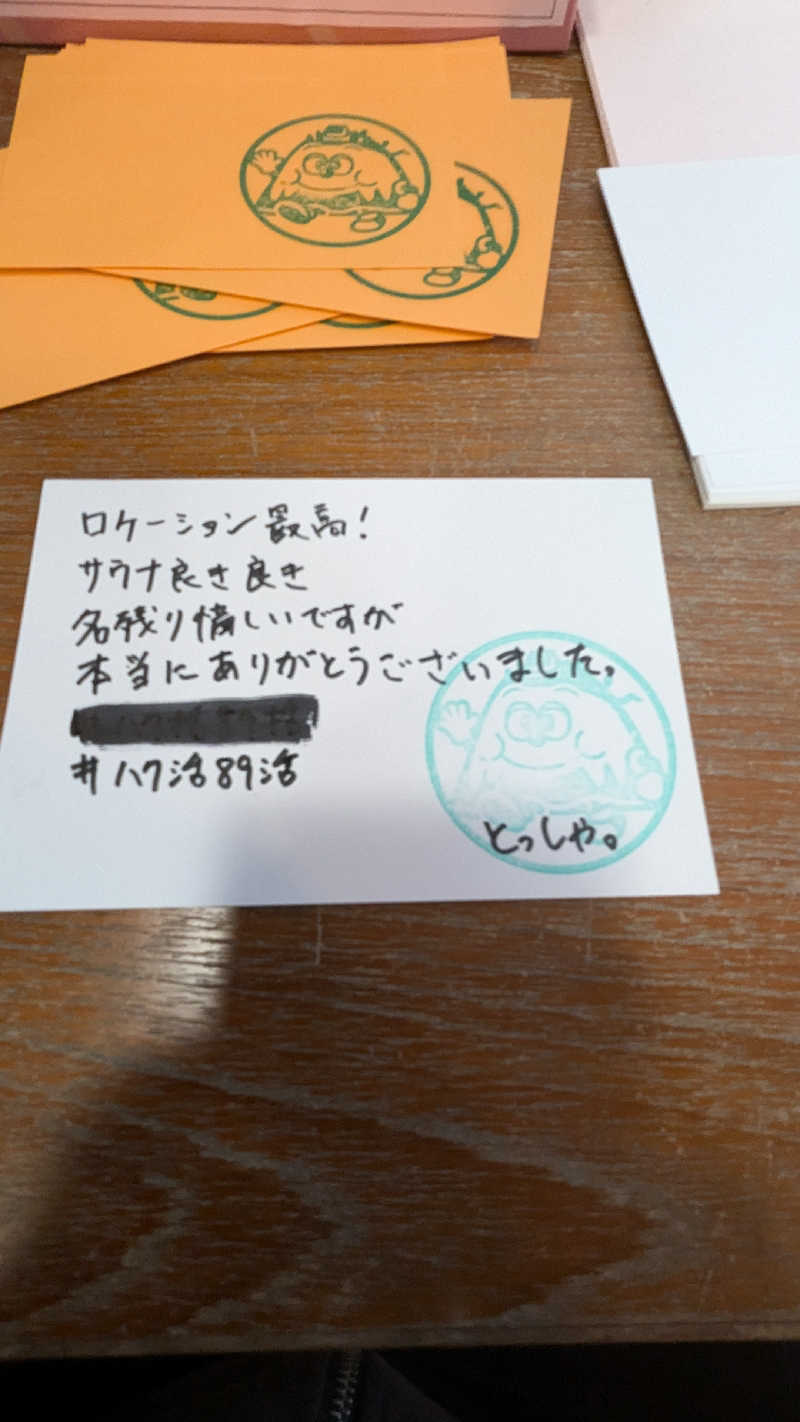 ロケーション最高!
サウナ良き良き
名残り惜しいですが
本当にありがとうございました。
#ハク活89活
とっしゃ。